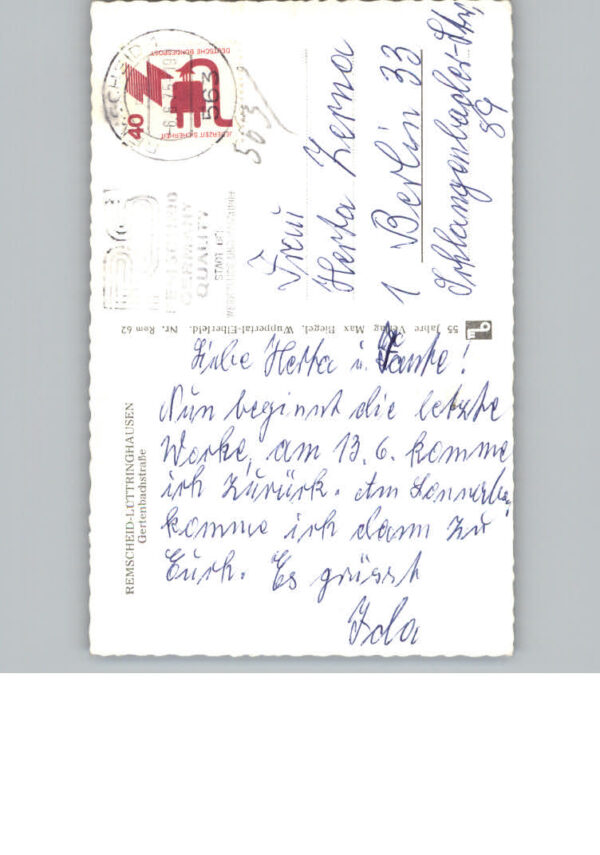 REMSCHEID-LÜTTRINGHAUSEN
Gertenbachstraße
Liebe Herta u. Tante!
Nun beginnt die letzte
Woche, am 13. 6. komme
ich zurück. Am Sonnabe.
komme ich dann zu
Euch. Es grüsst
Ida
55 Jahre Verlag Max Biegel, Wuppertal-Elberfeld. Nr. Rem 62
Frau
Herta Zerna
1 Berlin 33
Schlangenbader-Str.
89
563
DEUTSCHE BUNDESPOST
JEDERZEIT SICHERHEIT
40
563
GERMANY
QUALITY
STADT DER